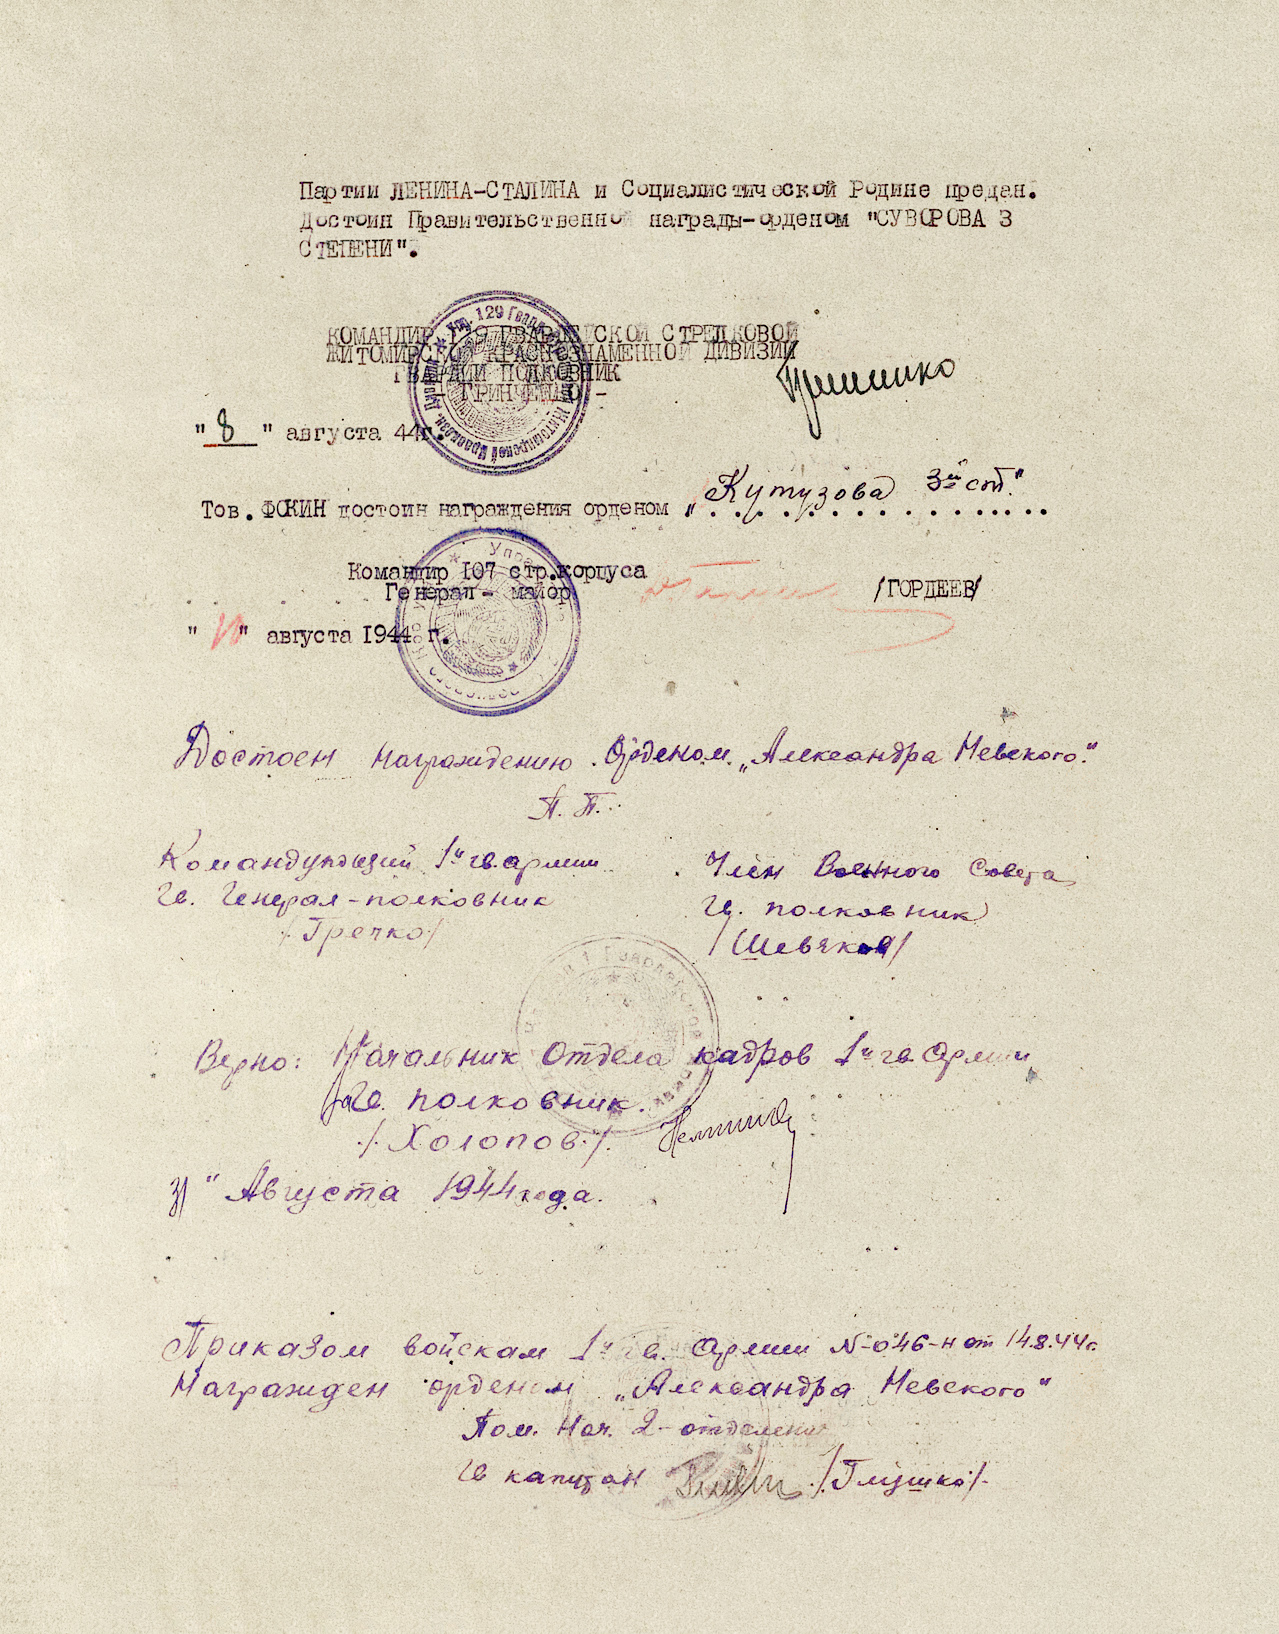 Партии ЛЕНИНА-СТАЛИНА и Социалистической Родине предан.
Достоин Правительственной награды-орденом "СУВОРОВА 3
СТЕПЕНИ".
КОМАНДИР 129 ГВАРДЕЙСКОЙ СТРЕЛКОВОЙ
ЖИТОМИРСКОЙ КРАСНОЗНАМЕННОЙ ДИВИЗИИ
ГВАРДИИ ПОЛКОВНИК
- ГРИНЧЕНКО -
"8" августа 44г.
Тов. ФОКИН достоин награждения орденом „Кутузова 3й ст."
Командир 107 стр.корпуса
Генерал - майор /ГОРДЕЕВ/
"10" августа 1944 г.
Достоен Награждению Орденом „Александра Невского."
П. П.
Командующий 1й гв. армии
Гв. Генерал-полковник
/Гречко/
Член Военного Совета
Гв. полковник
/Шевяков/
Верно: Начальник Отдела кадров 1й гв. Армии
Гв. полковник.
/Холопов/.
31" Августа 1944 года.
Приказом войскам 1й гв. Армии №-046-н от 14.8.44г.
Награжден орденом „Александра Невского"
Пом. Нач. 2-отделения
Гв капитан /Глушко/.